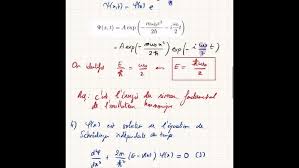 Ψ(x,t) = φ(x) e
Ψ(x,t) = A exp(− mω₀x²/2ħ − i ω₀/2 t)
= A exp(− mω₀x²/2ħ) exp(− i ω₀/2 t)
On identifie E/ħ = ω₀/2 ⟺ E = ħω₀/2
Rq : c'est l'énergie du niveau fondamental
de l'oscillateur harmonique
b) φ(x) est solution de l'équation de
Schrödinger indépendante du temps
d²φ/dx² + 2m/ħ² (E − V(x)) φ(x) = 0 (3)